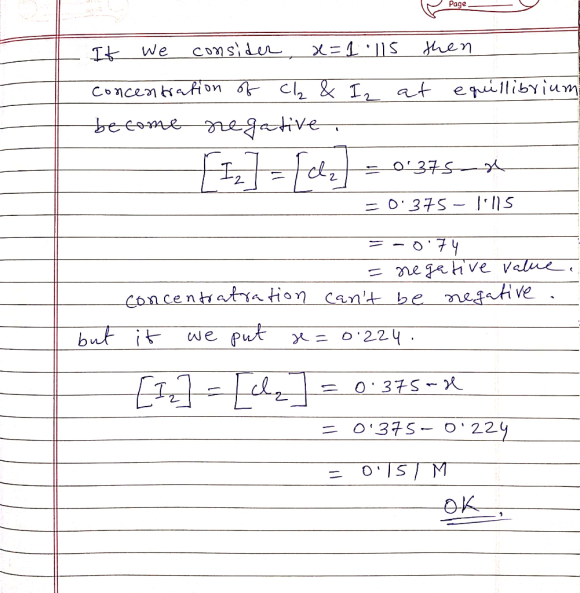 Page
If we consider, x=1.115 then
concentration of Cl2 & I2 at equillibrium
become negative.
[I2] = [Cl2] = 0.375-x
= 0.375 - 1.115
= -0.74
= negative value.
concentratration can't be negative.
but if we put x = 0.224.
[I2] = [Cl2] = 0.375-x
= 0.375 - 0.224
= 0.151 M
OK.